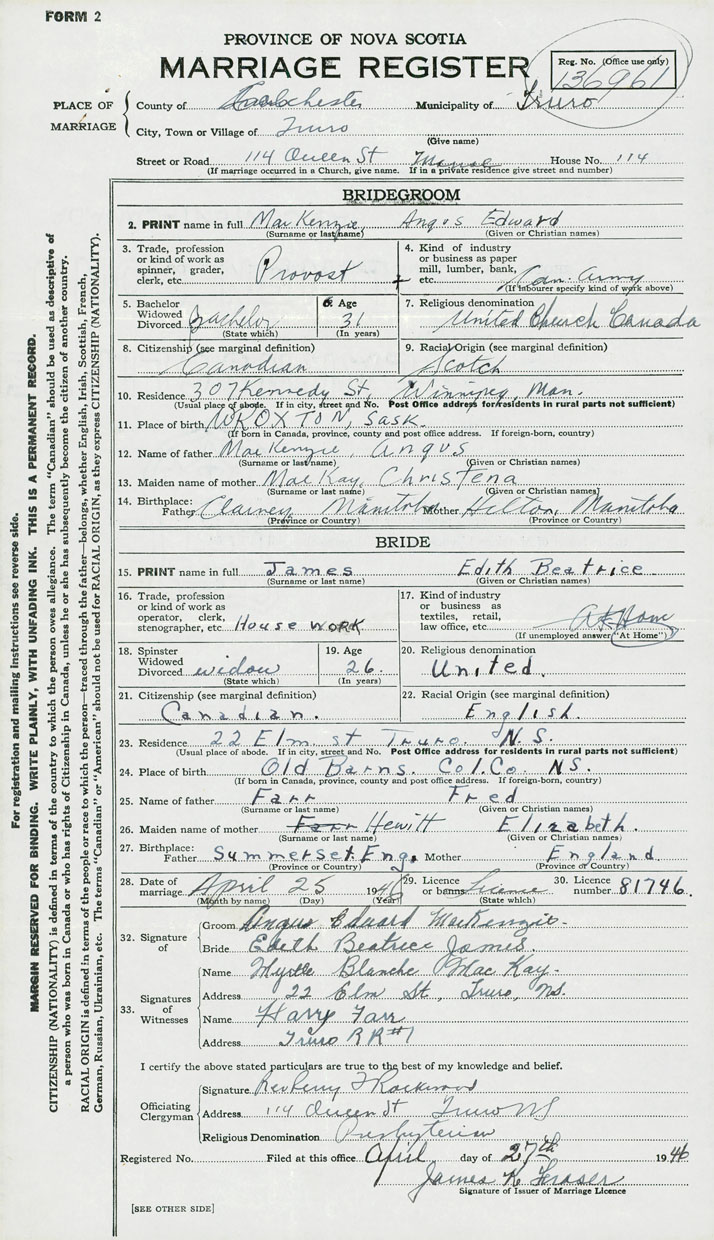 FORM 2
PROVINCE OF NOVA SCOTIA
MARRIAGE REGISTER
Reg. No. (Office use only)
136961
PLACE OF MARRIAGE
County of Colchester Municipality of Truro
City, Town or Village of Truro
(Give name)
Street or Road 114 Queen St Manse House No. 114
(If marriage occurred in a Church, give name. If in a private residence give street and number)
BRIDEGROOM
2. PRINT name in full MacKenzie, Angus Edward
(Surname or last name) (Given or Christian names)
3. Trade, profession or kind of work as spinner, grader, clerk, etc. Provost
4. Kind of industry or business as paper mill, lumber, bank, etc. Can. Army
(If labourer specify kind of work above)
5. Bachelor Widowed Divorced Bachelor
(State which)
6. Age 31
(In years)
7. Religious denomination United Church Canada
8. Citizenship (see marginal definition) Canadian
9. Racial Origin (see marginal definition) Scotch
10. Residence 307 Kennedy St, Winnipeg, Man.
(Usual place of abode. If in city, street and No. Post Office address for residents in rural parts not sufficient)
11. Place of birth WROXTON, Sask.
(If born in Canada, province, county and post office address. If foreign-born, country)
12. Name of father MacKenzie, Angus
(Surname or last name) (Given or Christian names)
13. Maiden name of mother MacKay, Christena
(Surname or last name) (Given or Christian names)
14. Birthplace: Father Manitoba Mother Hilton, Manitoba
(Province or Country) (Province or Country)
BRIDE
15. PRINT name in full James Edith Beatrice
(Surname or last name) (Given or Christian names)
16. Trade, profession or kind of work as operator, clerk, stenographer, etc. House work
17. Kind of industry or business as textiles, retail, law office, etc. At Home
(If unemployed answer "At Home")
18. Spinster Widowed Divorced widow
(State which)
19. Age 26.
(In years)
20. Religious denomination United.
21. Citizenship (see marginal definition) Canadian.
22. Racial Origin (see marginal definition) English.
23. Residence 22 Elm st Truro. N.S.
(Usual place of abode. If in city, street and No. Post Office address for residents in rural parts not sufficient)
24. Place of birth Old Barns. Col. Co. N.S.
(If born in Canada, province, county and post office address. If foreign-born, country)
25. Name of father Farr Fred
(Surname or last name) (Given or Christian names)
26. Maiden name of mother Farr Hewitt Elizabeth.
(Surname or last name) (Given or Christian names)
27. Birthplace: Father Summerset. Eng. Mother England.
(Province or Country) (Province or Country)
28. Date of marriage April 25 1946
(Month by name) (Day) (Year)
29. Licence or banns License
(State which)
30. Licence number 81746.
32. Signature of
Groom Angus Edward MacKenzie.
Bride Edith Beatrice James.
33. Signatures of Witnesses
Name Myrtle Blanche MacKay.
Address 22 Elm St, Truro, N.S.
Name Harry Farr
Address Truro RR #1
I certify the above stated particulars are true to the best of my knowledge and belief.
Officiating Clergyman
Signature Rev Perry F Rockwood
Address 114 Queen St Truro NS
Religious Denomination Presbyterian
Registered No. Filed at this office April day of 27th 1946
James K Fraser
Signature of Issuer of Marriage Licence
[SEE OTHER SIDE]
For registration and mailing instructions see reverse side.
MARGIN RESERVED FOR BINDING. WRITE PLAINLY, WITH UNFADING INK. THIS IS A PERMANENT RECORD.
CITIZENSHIP (NATIONALITY) is defined in terms of the country to which the person owes allegiance. The term "Canadian" should be used as descriptive of
a person who was born in Canada or who has rights of Citizenship in Canada, unless he or she has subsequently become the citizen of another country.
RACIAL ORIGIN is defined in terms of the people or race to which the person—traced through the father—belongs, whether English, Irish, Scottish, French,
German, Russian, Ukrainian, etc. The terms "Canadian" or "American" should not be used for RACIAL ORIGIN, as they express CITIZENSHIP (NATIONALITY).